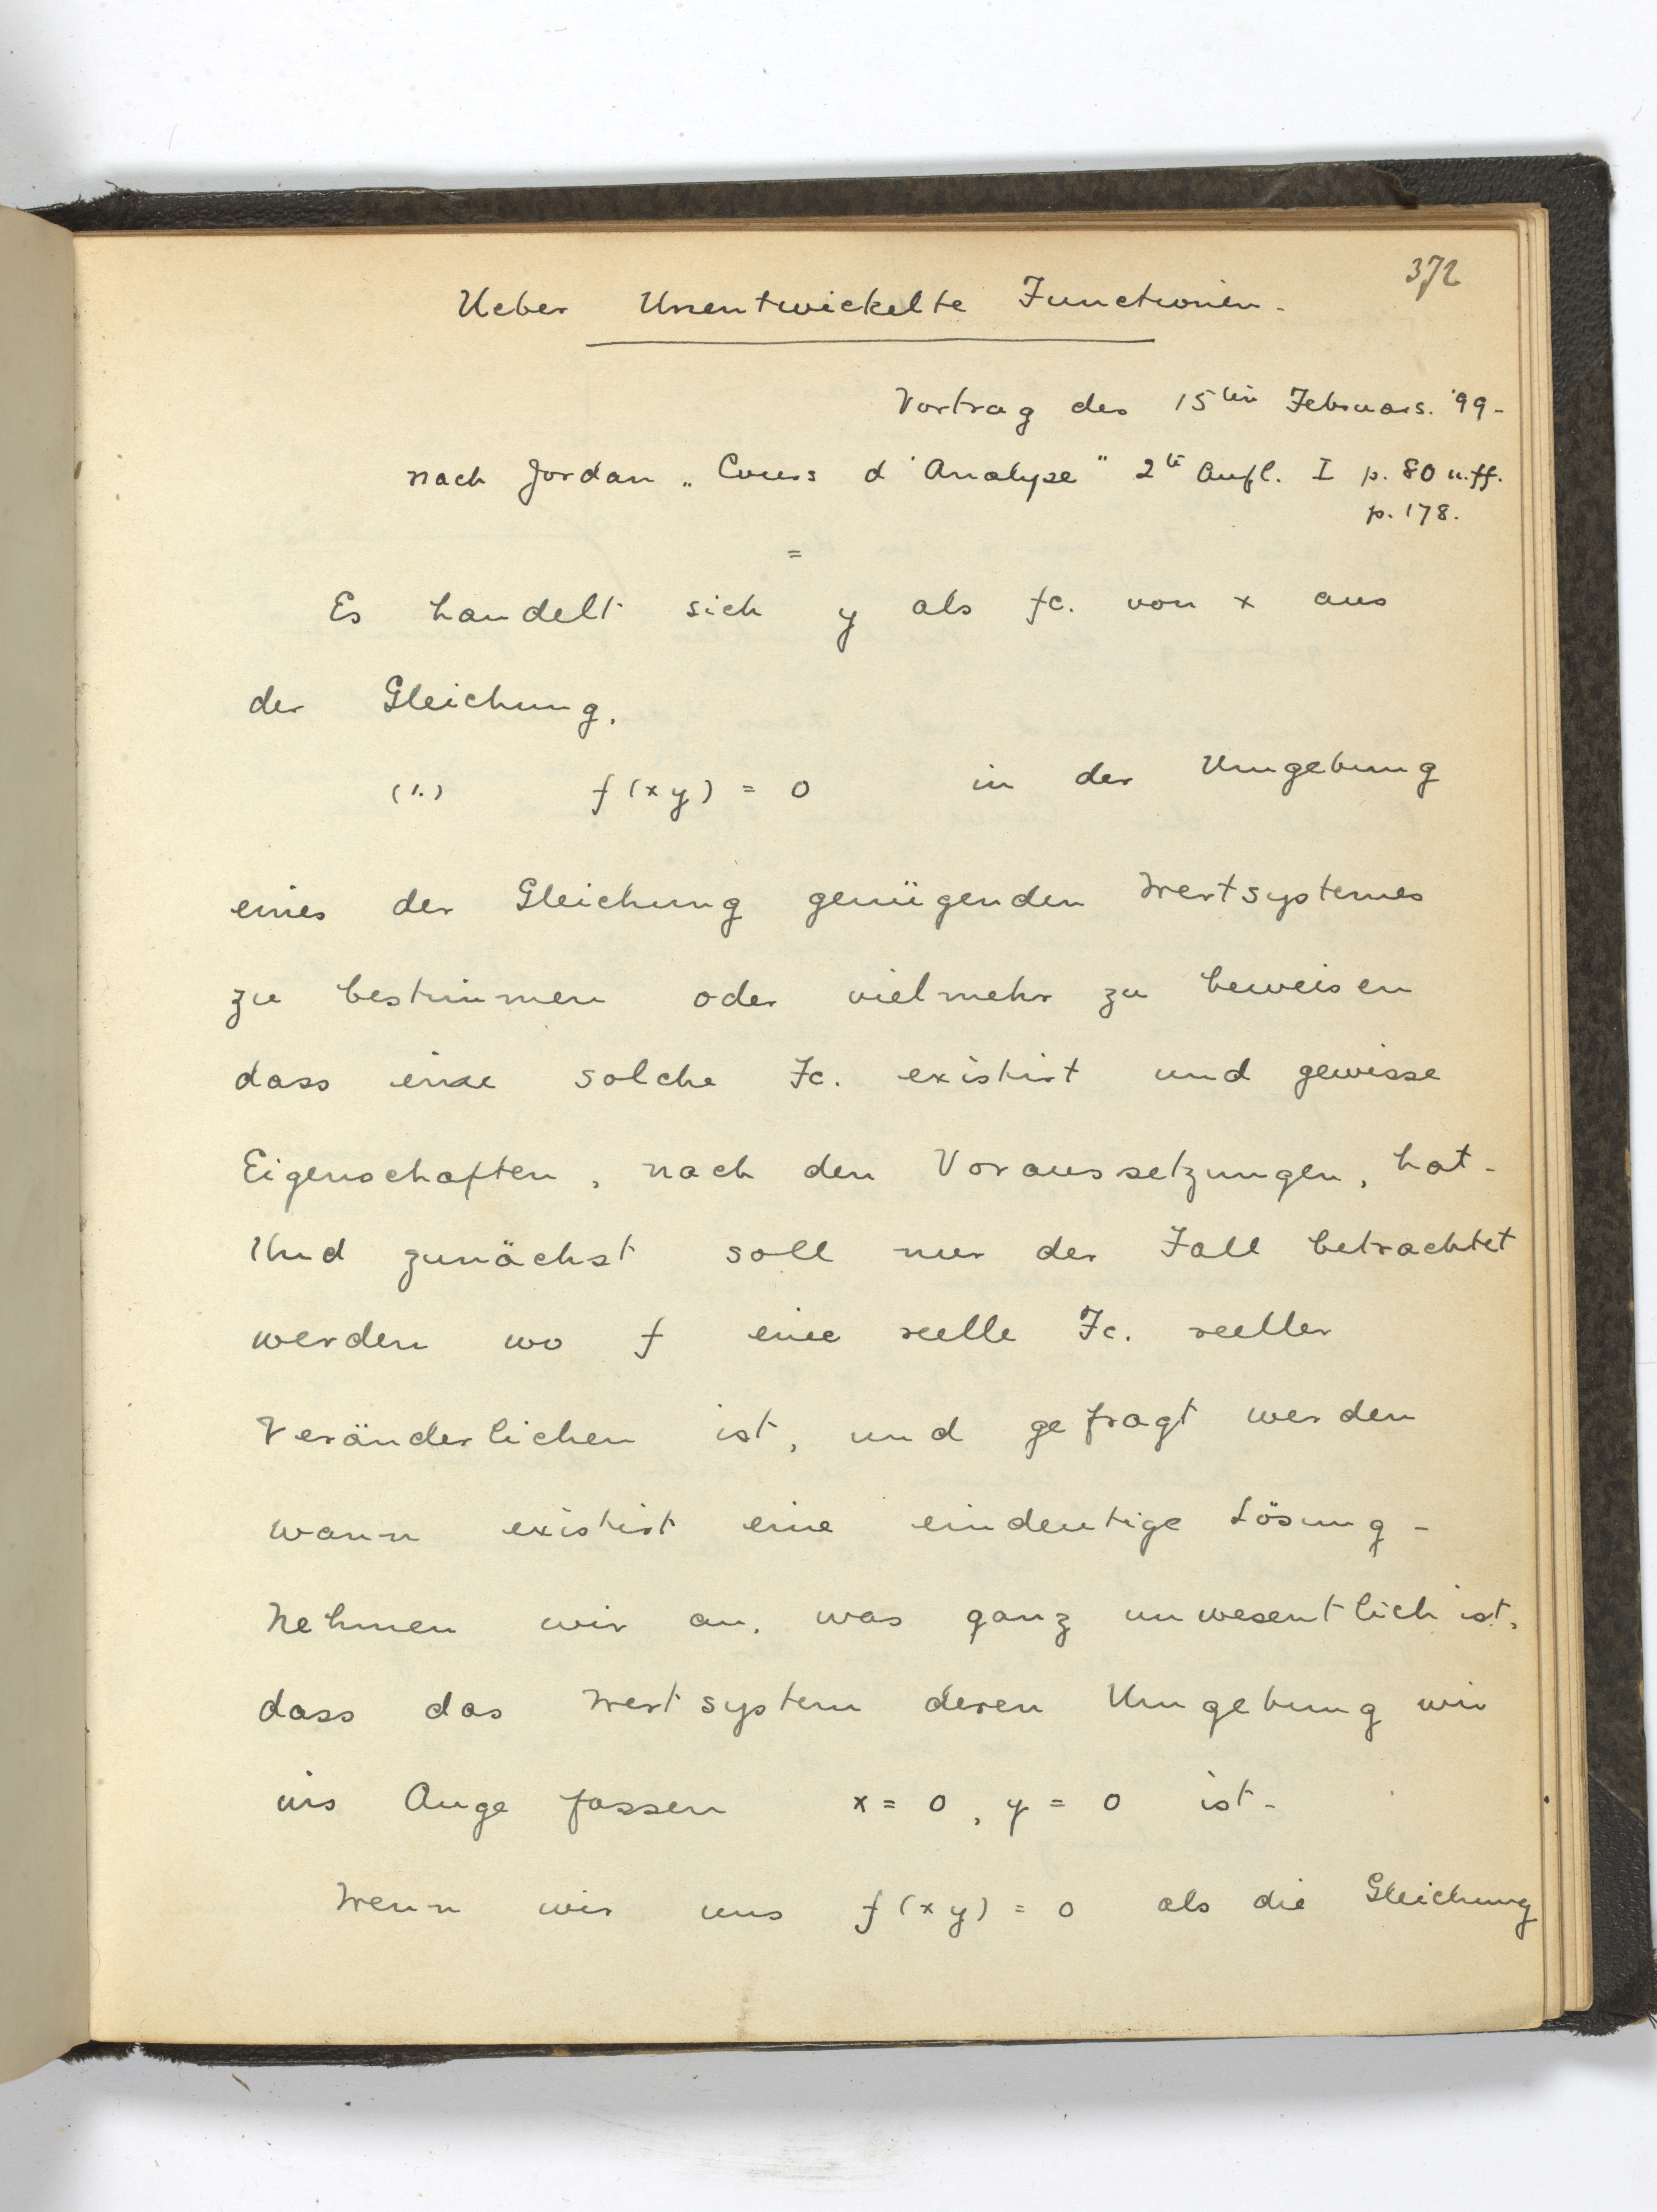 372
Ueber Unentwickelte Functionen.
Vortrag des 15ten Februars. '99.
nach Jordan „Cours d'Analyse" 2te Aufl. I p. 80 u.ff.
p. 178.
=
Es handelt sich y als fc. von x aus
der Gleichung.
(1.) f(xy) = 0 in der Umgebung
eines der Gleichung genügenden Wertsystemes
zu bestimmen oder vielmehr zu beweisen
dass eine solche Fc. existirt und gewisse
Eigenschaften, nach den Voraussetzungen, hat.
Und zunächst soll nur der Fall betrachtet
werden wo f eine reelle Fc. reeller
Veränderlichen ist, und gefragt werden
wann existirt eine eindeutige Lösung.
Nehmen wir an, was ganz unwesentlich ist,
dass das Wertsystem deren Umgebung wir
ins Auge fassen x = 0, y = 0 ist.
Wenn wir uns f(xy) = 0 als die Gleichung